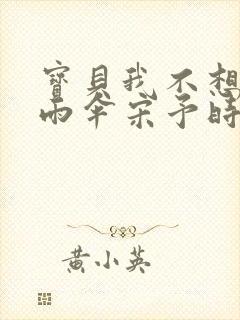 寶貝我不想
雨傘宋予時
黃小英